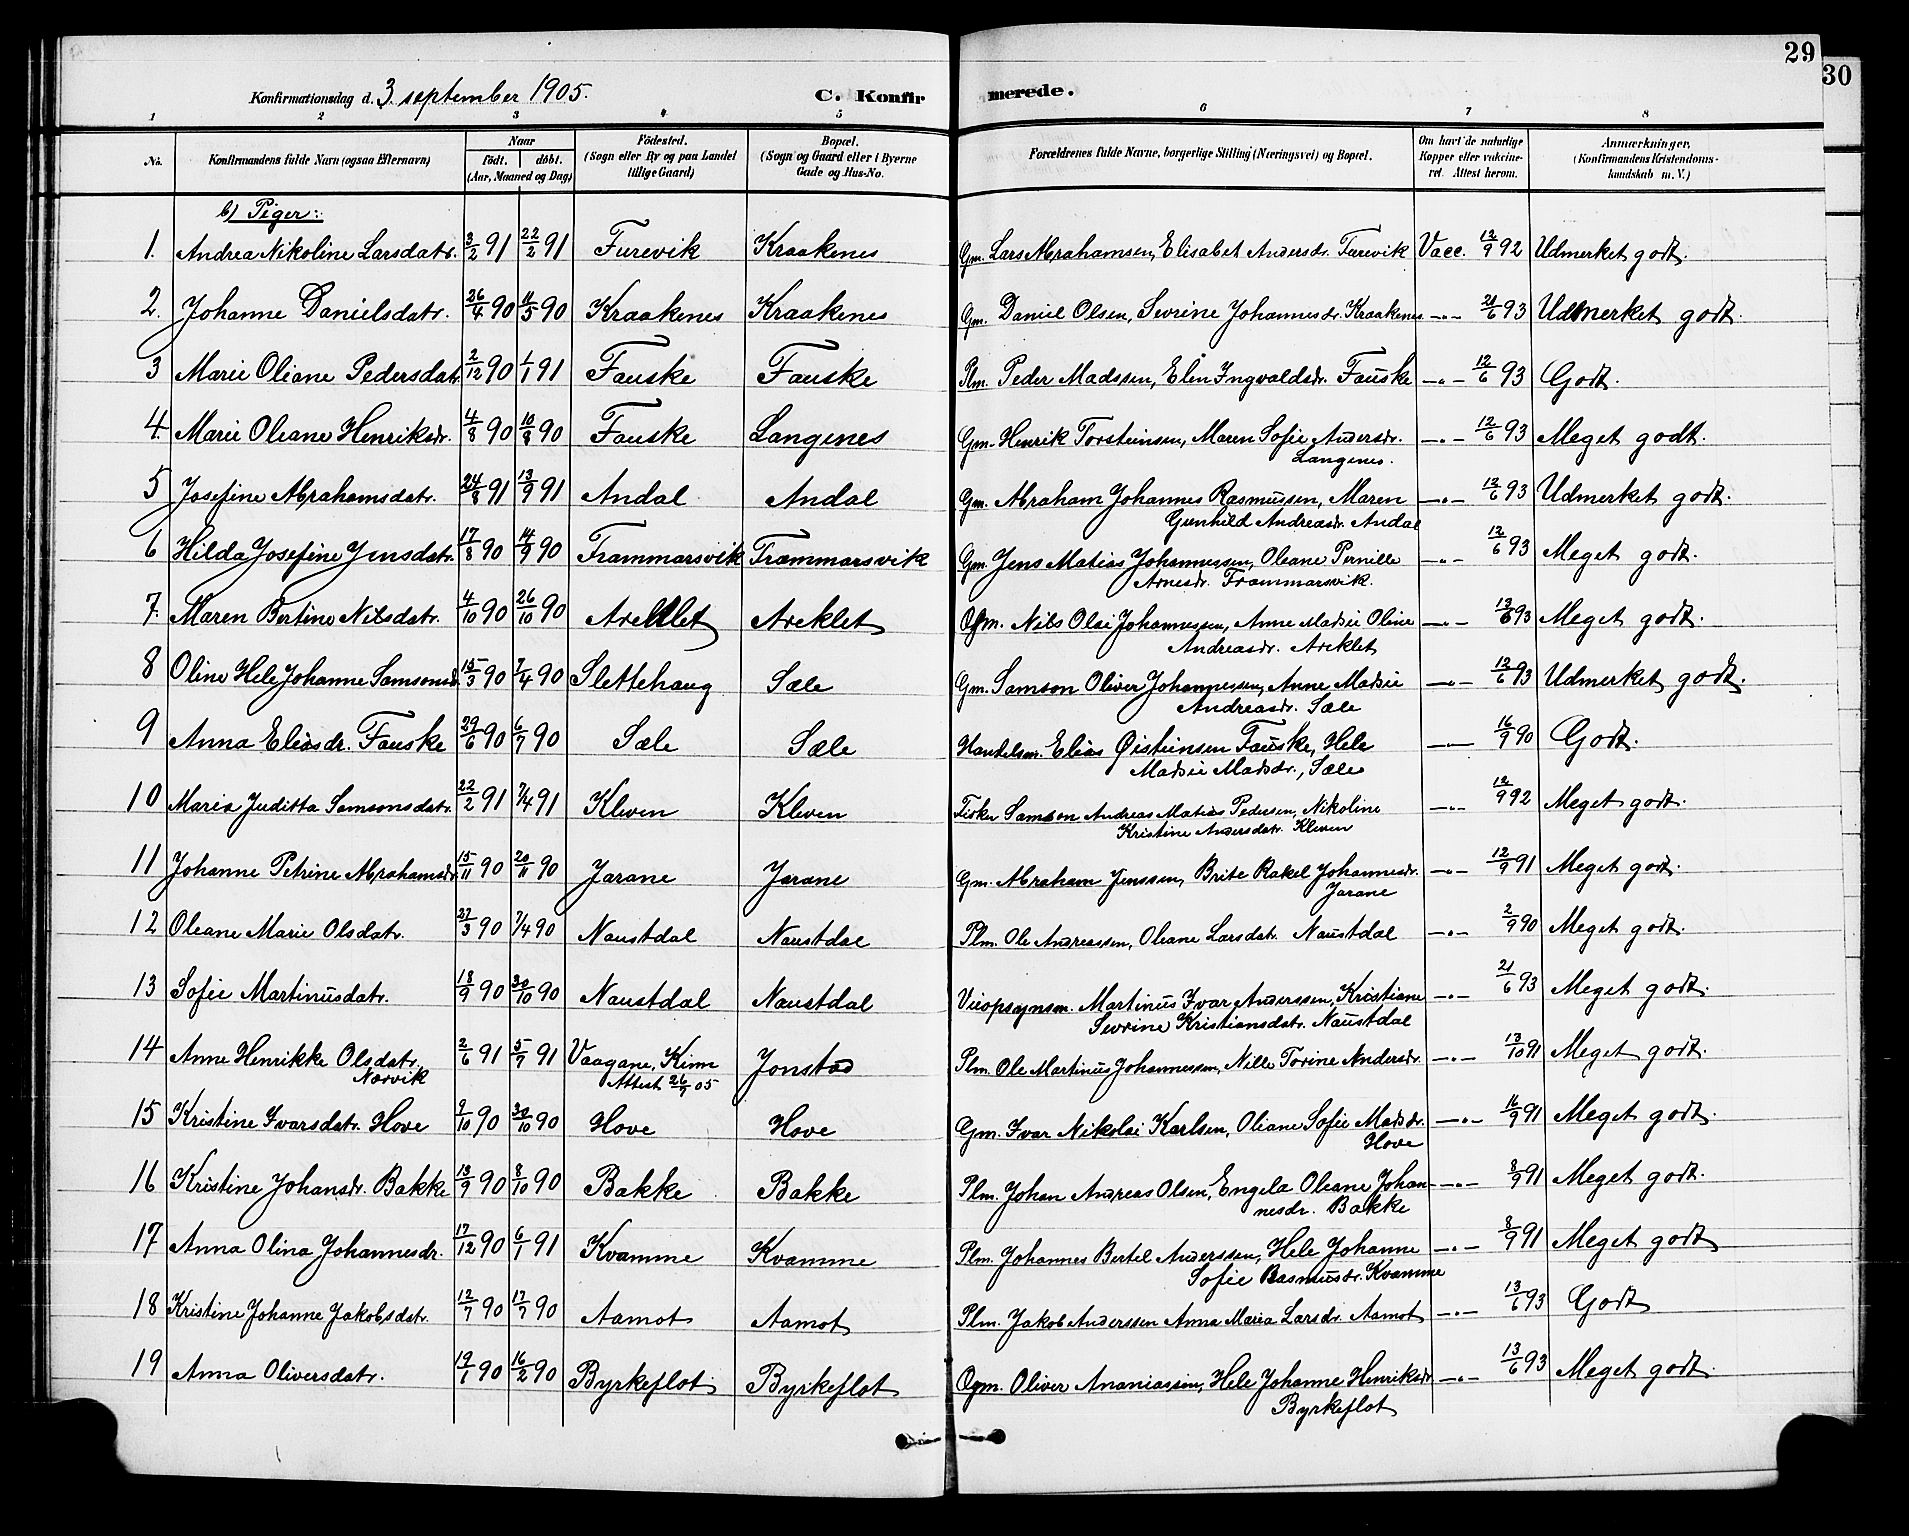 29
30
Konfirmationsdag d. 3 september 1905. C. Konfirmerede.
1 2 3 4 5 6 7 8
No. Konfirmandens fulde Navn (ogsaa Efternavn) Naar födt. döbt. (Aar, Maaned og Dag) Födested. (Sogn eller By og paa Landet tillige Gaard) Bopæl. (Sogn og Gaard eller i Byerne Gade og Hus-No. Forældrenes fulde Navne, borgerlige Stilling (Næringsvei) og Bopæl. Om havt de naturlige Kopper eller vakcineret. Attest herom. Anmærkninger, (Konfirmandens Kristendomskundskab m. V.)
b) Piger:
1. Andrea Nikoline Larsdatr. 3/2 91 22/2 91 Furevik Kraakenes Gm. Lars Abrahamsen, Elisabet Andersdr. Furevik Vacc. 12/9 92 Udmerket godt.
2. Johanne Danielsdatr. 26/4 90 11/5 90 Kraakenes Kraakenes Gm. Daniel Olsen, Sevrine Johannesdr. Kraakenes -"- 21/6 93 Udmerket godt.
3 Marie Oliane Pedersdatr. 2/12 90 1/1 91 Fauske Fauske Plm. Peder Madssen, Elen Ingvaldsdr. Fauske -"- 12/6 93 Godt.
4. Marie Oliane Henriksdr. 4/8 90 10/8 90 Fauske Langenes Gm. Henrik Torsteinsen, Maren Sofie Andersdr. -"- 12/6 93 Meget godt.
Langenes.
5 Josefine Abrahamsdatr. 24/8 91 13/9 91 Andal Andal Gm. Abraham Johannes Rasmussen, Maren -"- 12/6 93 Udmerket godt.
Gunhild Andreasdr. Andal
6 Hilda Josefine Jensdatr. 17/8 90 14/9 90 Frammarsvik Frammarsvik Gm. Jens Matias Johannessen, Oliane Pernille -"- 12/6 93 Meget godt.
Arnesdr. Frammarsvik.
7. Maren Bertine Nilsdatr. 4/10 90 26/10 90 Areklet Areklet Gm. Nils Olai Johannessen, Anne Madsie Oline -"- 13/6 93 Meget godt.
Andreasdr. Areklet
8 Oline Hele Johanne Samsonsd. 15/3 90 7/4 90 Slettehaug Sæle Gm. Samson Oliver Johannessen, Anne Madsie -"- 12/6 93 Udmerket godt.
Andreasdr. Sæle
9 Anna Eliasdr. Fauske 29/6 90 6/7 90 Sæle Sæle Handelsm. Elias Øisteinsen Fauske, Hele -"- 16/9 90 Godt.
Madsie Madsdr., Sæle
10 Maria Juditta Samsonsdatr. 22/2 91 7/4 91 Kleven Kleven Fisker Samson Andreas Matias Pedersen, Nikoline -"- 12/9 92 Meget godt.
Kristine Andersdatr. Kleven
11 Johanne Petrine Abrahamsdr. 15/11 90 20/11 90 Jarane Jarane Gm. Abraham Jenssen, Brite Rakel Johannesdr. -"- 12/9 91 Meget godt.
Jarane
12 Oleane Marie Olsdatr. 27/3 90 7/4 90 Naustdal Naustdal Plm. Ole Andreassen, Oliane Larsdatr. Naustdal -"- 2/9 90 Meget godt.
13 Sofie Martinusdatr. 18/9 90 30/10 90 Naustdal Naustdal Veiopsynsm. Martinus Ivar Anderssen, Kristiane -"- 21/6 93 Meget godt.
Sevrine Kristiansdatr. Naustdal
14 Anne Henrikke Olsdatr. 2/6 91 5/7 91 Vaagane, Kinn Jonstad Plm. Ole Martinus Johannessen, Nille Torine Andersdr. -"- 13/10 91 Meget godt.
Nørvik Attest 26/9 05
15 Kristine Ivarsdatr. Hove 9/10 90 30/10 90 Hove Hove Gm. Ivar Nikolai Karlsen, Oliane Sofie Madsdr. -"- 16/9 91 Meget godt.
Hove
16 Kristine Johansdr. Bakke 13/9 90 8/10 90 Bakke Bakke Plm. Johan Andreas Olsen, Engela Oleane Johan- -"- 8/9 91 Meget godt.
nesdr. Bakke
17 Anna Olina Johannesdr. 17/12 90 6/1 91 Kvamme Kvamme Plm. Johannes Bertel Anderssen, Hele Johanne -"- 8/9 91 Meget godt
Sofie Rasmusdr. Kvamme
18 Kristine Johanne Jakobsdatr. 12/7 90 17/7 90 Aamot Aamot Plm. Jakob Anderssen Anna Maria Larsdr. Aamot -"- 13/6 93 Godt
19 Anna Oliversdatr. 19/1 90 16/2 90 Byrkeflot Byrkeflot Gm. Oliver Ananiassen, Hele Johanne Henriksdr -"- 13/6 93 Meget godt.
Byrkeflot